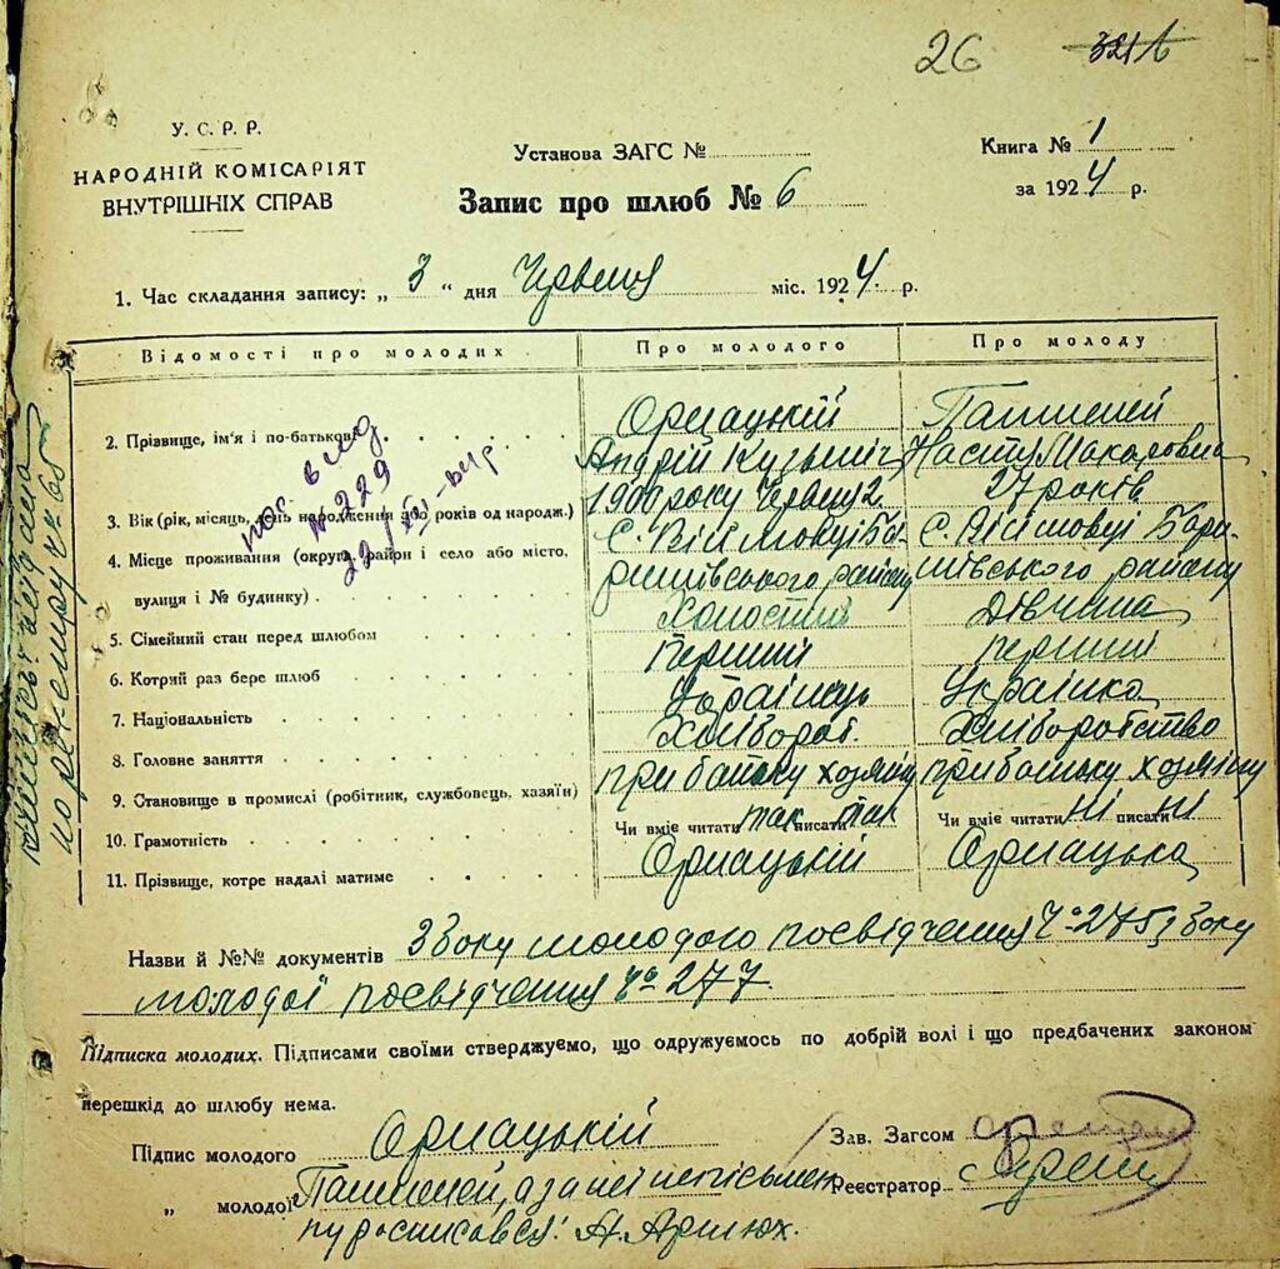 26 321 в
У. С. Р. Р.
НАРОДНІЙ КОМІСАРІЯТ
ВНУТРІШНІХ СПРАВ
Установа ЗАГС №
Запис про шлюб № 6
Книга № 1
за 1924 р.
1. Час складання запису: „ 3 “ дня Червня міс. 1924. р.
Відомості про молодих Про молодого Про молоду
2. Прізвище, ім'я і по-батькові Орнацький Пашиней
Андрій Кузьміч Настя Макаровна
3. Вік (рік, місяць, день народження або років од народж.) 1900 року Червня 2. 27 років
4. Місце проживання (округа, район і село або місто, С. Війтовці Ба- С. Війтовці Бари-
вулиця і № будинку) ришівського району шівського району
5. Сімейний стан перед шлюбом Холостий Дівчина
6. Котрий раз бере шлюб Перший перший
7. Національність Українець Українка
8. Головне заняття Хлібороб. Хліборобство
9. Становище в промислі (робітник, службовець, хазяїн) при батьку хозяїну при батьку хозяїну
10. Грамотність Чи вміє читати так писати так Чи вміє читати ні писати ні
11. Прізвище, котре надалі матиме Орнацький Орнацька
№ 229
Назви й №№ документів З боку молодого посвідчення Ч° 275 з боку
молодої посвідчення Ч° 277.
Підписка молодих. Підписами своїми стверджуємо, що одружуємось по добрій волі і що предбачених законом
перешкід до шлюбу нема.
Підпис молодого Орнацький
Зав. Загсом
„ молодої Пашиней, а за неї неписьмен
Реєстратор
ну росписався: А. Арт'юх.